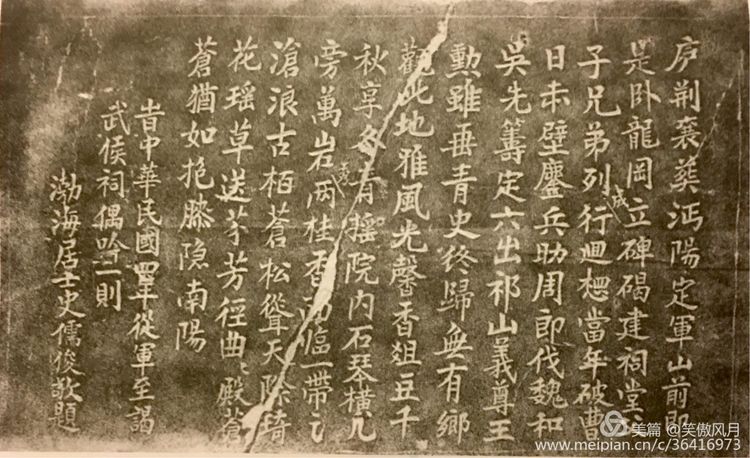 庐荆襄葬沔阳定军山前即
是卧龍岡立碑碣建祠堂父
子兄弟列成行迴想當年破曹
日赤壁鏖兵助周郎伐魏和
吳先籌定六出祁山義尊王
勲雖垂青史終歸無有鄉
觀此地雅風光馨香俎豆千
秋享冬青摇院内石琴横几
旁萬岩两桂香
滄浪古栢蒼松聳天際琦
花瑶草送芳芳徑曲殿蒼
蒼猶如抱膝隐南陽
旹中華民國四年從軍至謁
武侯祠偶吟二則
渤海居士史儒俊敬題
美篇@笑傲风月
www.meipian.cn/c/36416973